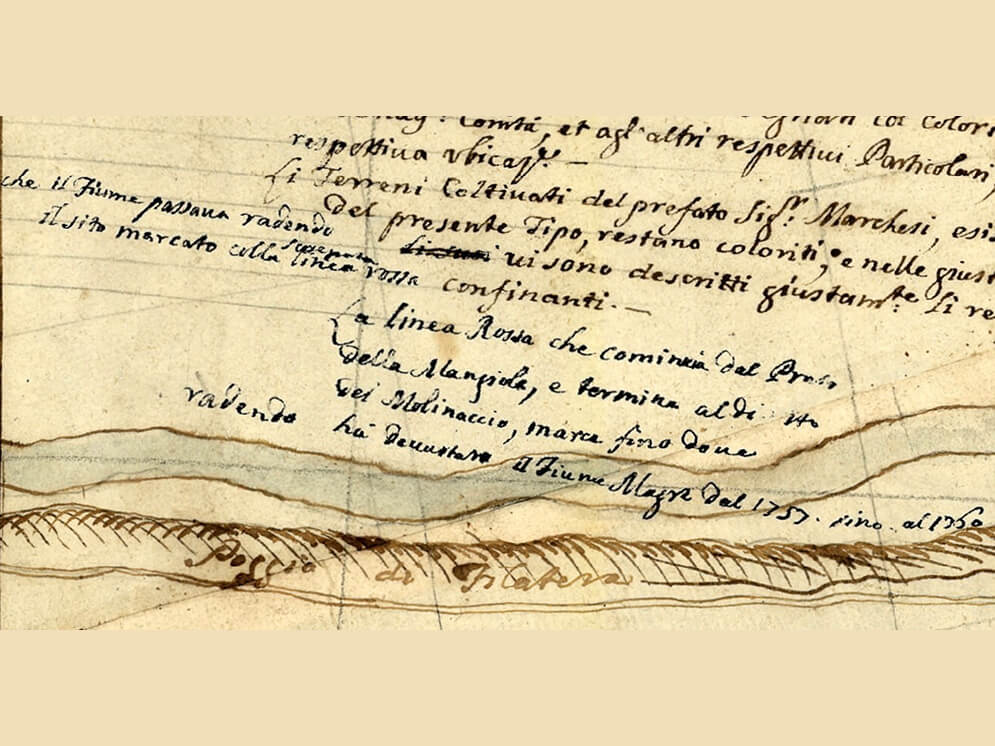 Comtà, et agl'altri respettivi Particolari,
respettiva
Li Terreni Coltivati del prefato Sig.r Marchesi,
del presente Tipo, restano coloriti, e nelle
vi sono descritti giustam.te li
confinanti. —
che il Fiume passava radendo
il sito marcato colla linea rossa
La linea Rossa che comincia dal
della Mangiola, e termina al
del Molinaccio, marca fino dove
radendo
hà devastato il Fiume Magra dal 1757. fino al 1760
Poggio di Filatera